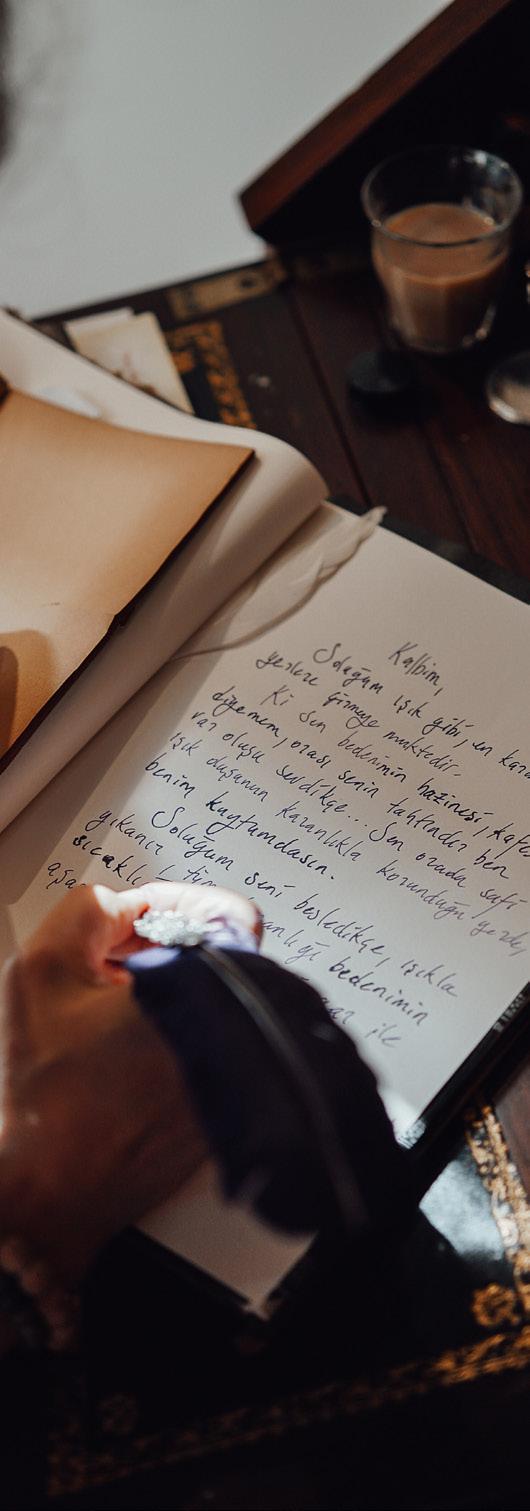 Kalbim,
Soluğum ışık gibi, en kara
yerlere girmeye muktedir.
Ki sen bedenimin hazinesi, kafes
diyemem, orası senin tahtındır ben
var oluşu sevdikçe... Sen orada safi
ışık duşunun karanlıkla korunduğu yerde,
benim kuytumdasın.
Soluğum seni besledikçe, ışıkla
yıkanır bedenimin
sıcaklı
ile